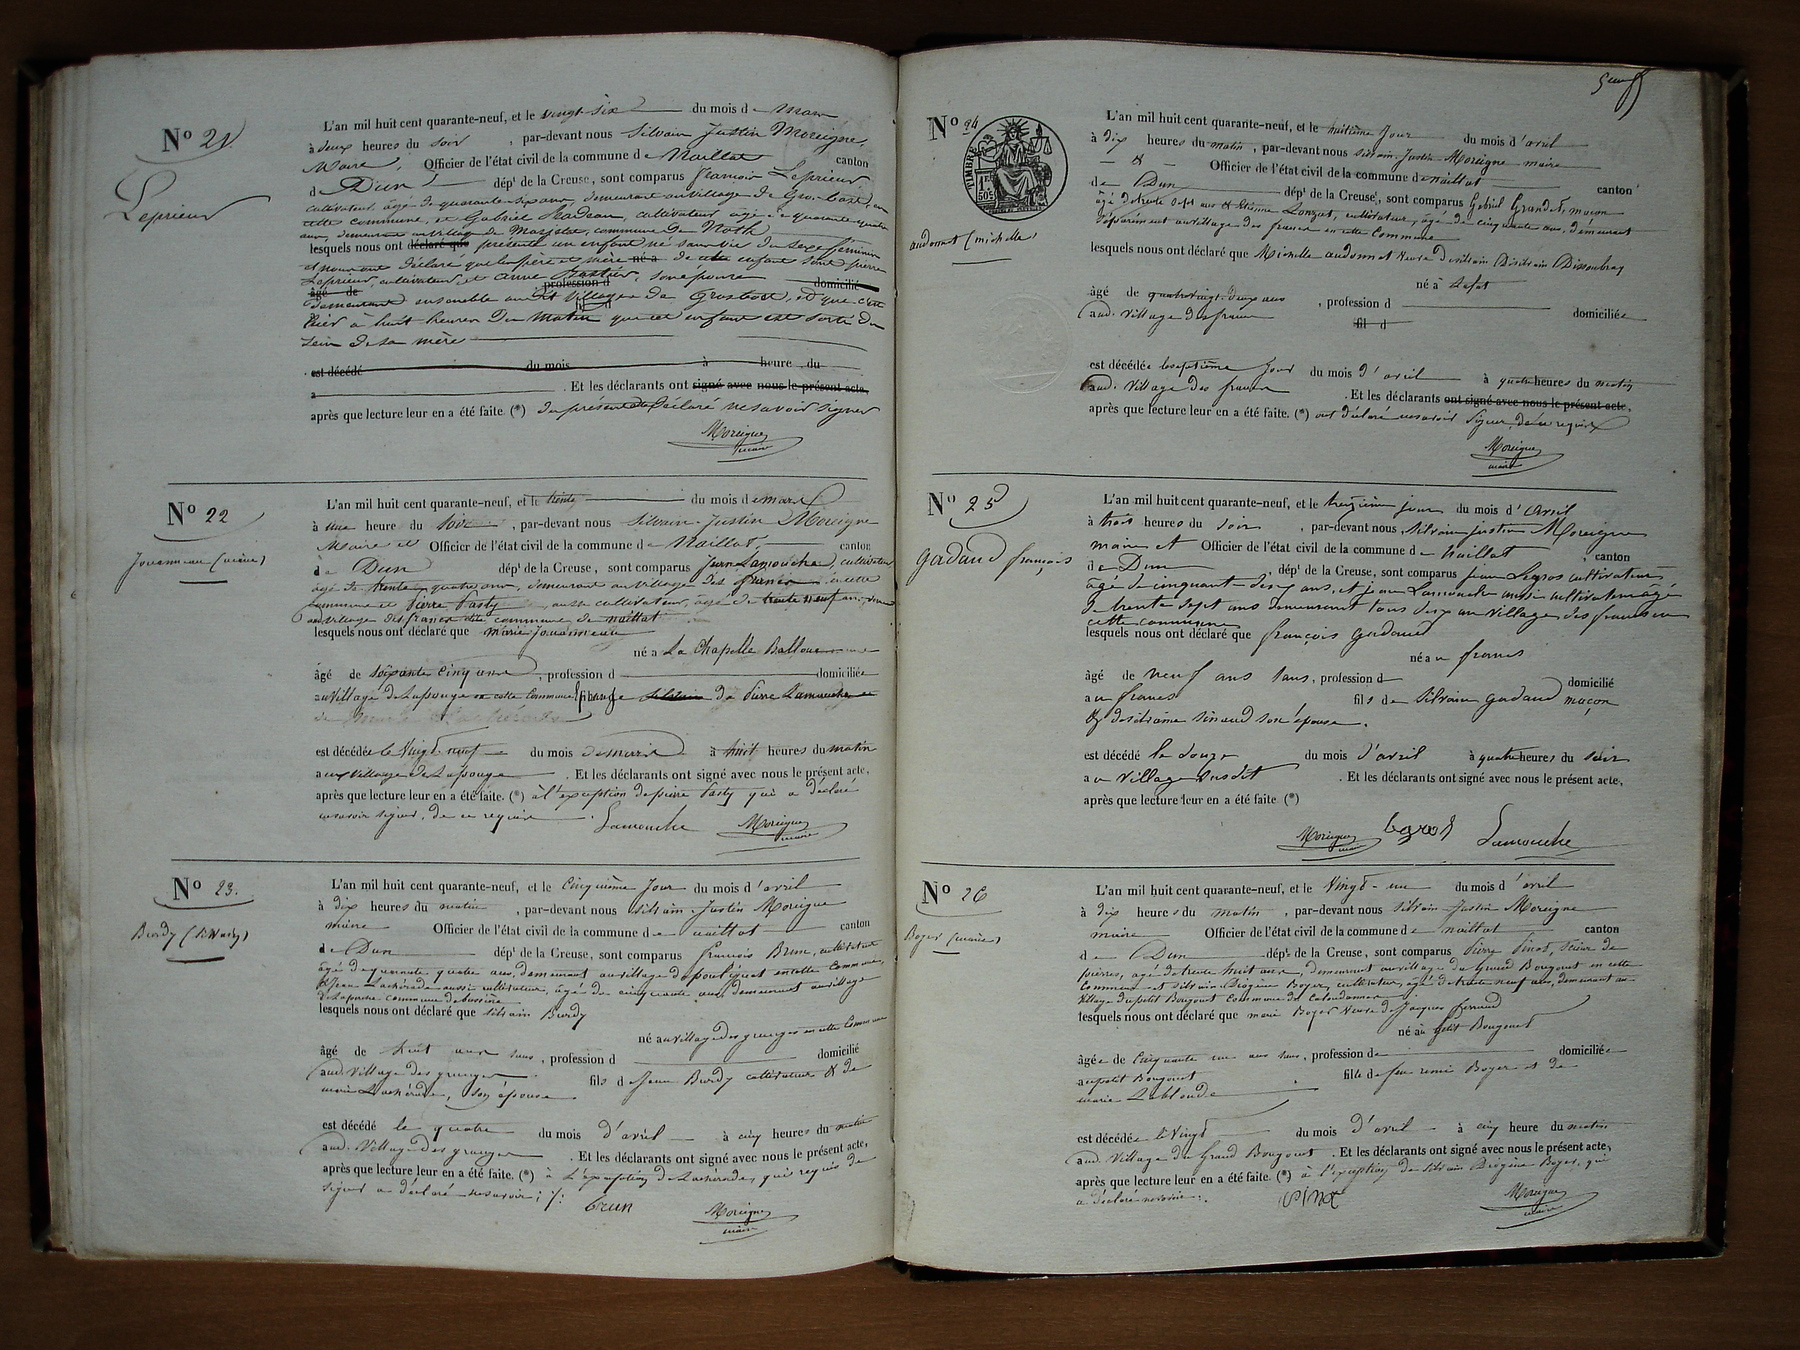 N° 21
Leprieur
L'an mil huit cent quarante-neuf, et le vingt six du mois de mars
à deux heures du soir, par-devant nous Silvain Justin Moreigne
Maire Officier de l'état civil de la commune de Naillat canton
de Dun dépt de la Creuse, sont comparus François Leprieur
cultivateur, âgé de quarante ans, demeurant au village de Grosbost, en
cette commune, et Gabriel Nadeau, cultivateur âgé de quarante quatre
ans, demeurant au village de commune de Noth
lesquels nous ont déclaré que présenté un enfant né sans vie du sexe féminin
et nous ont déclaré que les père et mère né a de cette enfant sont pierre
Leprieur, cultivateur, et anne Bastier, son épouse domicilié
âgé de profession d
demeurant ensemble audit village de Grosbost, et que c'est
fil d
hier à huit heures du matin que cet enfant est sorti du
sein de sa mère
est décédé du mois à heure du
a . Et les déclarants ont signé avec nous le présent acte,
après que lecture leur en a été faite. (*) du présent acte déclaré ne savoir signer
Moreigne
maire
N° 22
Jouanneau (marie)
L'an mil huit cent quarante-neuf, et le trente du mois de mars
à une heure du soir, par-devant nous Silvain Justin Moreigne
Maire et Officier de l'état civil de la commune de Naillat, canton
de Dun dépt de la Creuse, sont comparus Jean Lamouche, cultivateur
âgé de trente quatre ans, demeurant au village des francs, en cette
commune et Pierre Pasty aussi cultivateur, âgé de trente neuf ans, demeurant
au village des francs dite commune de naillat
lesquels nous ont déclaré que marie Jouanneau
né a La Chapelle Balloue
âgé de soixante cinq ans, profession d domiciliée
au village de Lapouge en cette commune de Pierre Lamouche
est décédée le vingt neuf du mois de mars à huit heures du matin
aux village de Lapouge. Et les déclarants ont signé avec nous le présent acte,
après que lecture leur en a été faite. (*) à l'exception de pierre Pasty qui a déclaré
ne savoir signer, de ce requis. Lamouche Moreigne
maire
N° 23.
Burdy (Silvain)
L'an mil huit cent quarante-neuf, et le Cinquième Jour du mois d'avril
à dix heures du matin, par-devant nous silvain Justin Moreigne
maire Officier de l'état civil de la commune de naillat canton
de Dun dépt de la Creuse, sont comparus François Brun, cultivateur
âgé de quarante quatre ans, demeurant au village de en cette commune,
& Jean Lachérade aussi cultivateur, âgé de cinquante ans, demeurant au village
de commune de bussière
lesquels nous ont déclaré que silvain Burdy
né au village des granges en cette commune
âgé de huit ans sans, profession d domicilié
aud. village des granges fils de Jean Burdy cultivateur & de
marie Lachérade, son épouse.
est décédé le quatre du mois d'avril à cinq heures du matin
aud. village des granges. Et les déclarants ont signé avec nous le présent acte,
après que lecture leur en a été faite. (*) à l'exception de Lachérade, qui requis de
signer a déclaré ne savoir ; /: brun Moreigne
maire
5
N° 24
TIMBRE
1 F.
50 C.
audonnet (michelle)
L'an mil huit cent quarante-neuf, et le huitième Jour du mois d'avril
à dix heures du matin, par-devant nous silvain Justin Moreigne maire
& Officier de l'état civil de la commune de naillat canton
de Dun dépt de la Creuse, sont comparus Gabriel Grandet, maçon
âgé de trente sept ans & Etienne Lonzat, cultivateur, âgé de cinquante ans, demeurant
séparément au village des francs en cette commune
lesquels nous ont déclaré que Michelle audonnet veuve de silvain
né à
âgé de quatrevingt deux ans, profession d domiciliée
aud. village des francs fil d
est décédée le septième Jour du mois d'avril à quatre heures du matin
aud. village des francs. Et les déclarants ont signé avec nous le présent acte,
après que lecture leur en a été faite. (*) ont déclaré ne savoir signer, de ce requis
Moreigne
maire
N° 25
gadaud françois
L'an mil huit cent quarante-neuf, et le treizième jour du mois d'avril
à trois heures du soir, par-devant nous silvain justin Moreigne
maire et Officier de l'état civil de la commune de Naillat, canton
de Dun dépt de la Creuse, sont comparus jean Legros cultivateur
âgé de cinquante deux ans, et jean Lamouche aussi cultivateur âgé
de trente sept ans demeurant tous deux au village des francs en
cette commune
lesquels nous ont déclaré que françois gadaud
né au francs
âgé de neuf ans sans, profession d domicilié
au francs fils de silvain gadaud maçon
& de son épouse.
est décédé le douze du mois d'avril à quatre heures du soir
au village susdit. Et les déclarants ont signé avec nous le présent acte,
après que lecture leur en a été faite (*)
Moreigne Legros Lamouche
maire
N° 26
Boyer (marie)
L'an mil huit cent quarante-neuf, et le vingt-un du mois d'avril
à dix heures du matin, par-devant nous silvain Justin Moreigne
maire Officier de l'état civil de la commune de naillat canton
de Dun dépt de la Creuse, sont comparus Pierre Pinot, scieur de
pierres, âgé de trente huit ans, demeurant au village du Grand Bougouet en cette
commune et silvain Diogène Boyer, cultivateur, âgé de trente neuf ans, demeurant au
village du petit Bougouet commune de Colondannes
lesquels nous ont déclaré que marie Boyer veuve de Jacques ferrand
né au petit Bougouet
âgée de cinquante un ans sans, profession de domiciliée
au petit Bougouet fille de feu remi Boyer et de
marie Leblond
est décédée le vingt du mois d'avril à cinq heure du matin
aud. village du Grand Bougouet. Et les déclarants ont signé avec nous le présent acte,
après que lecture leur en a été faite. (*) à l'exception de silvain Diogène Boyer, qui
a déclaré ne savoir. Pinot Moreigne
maire